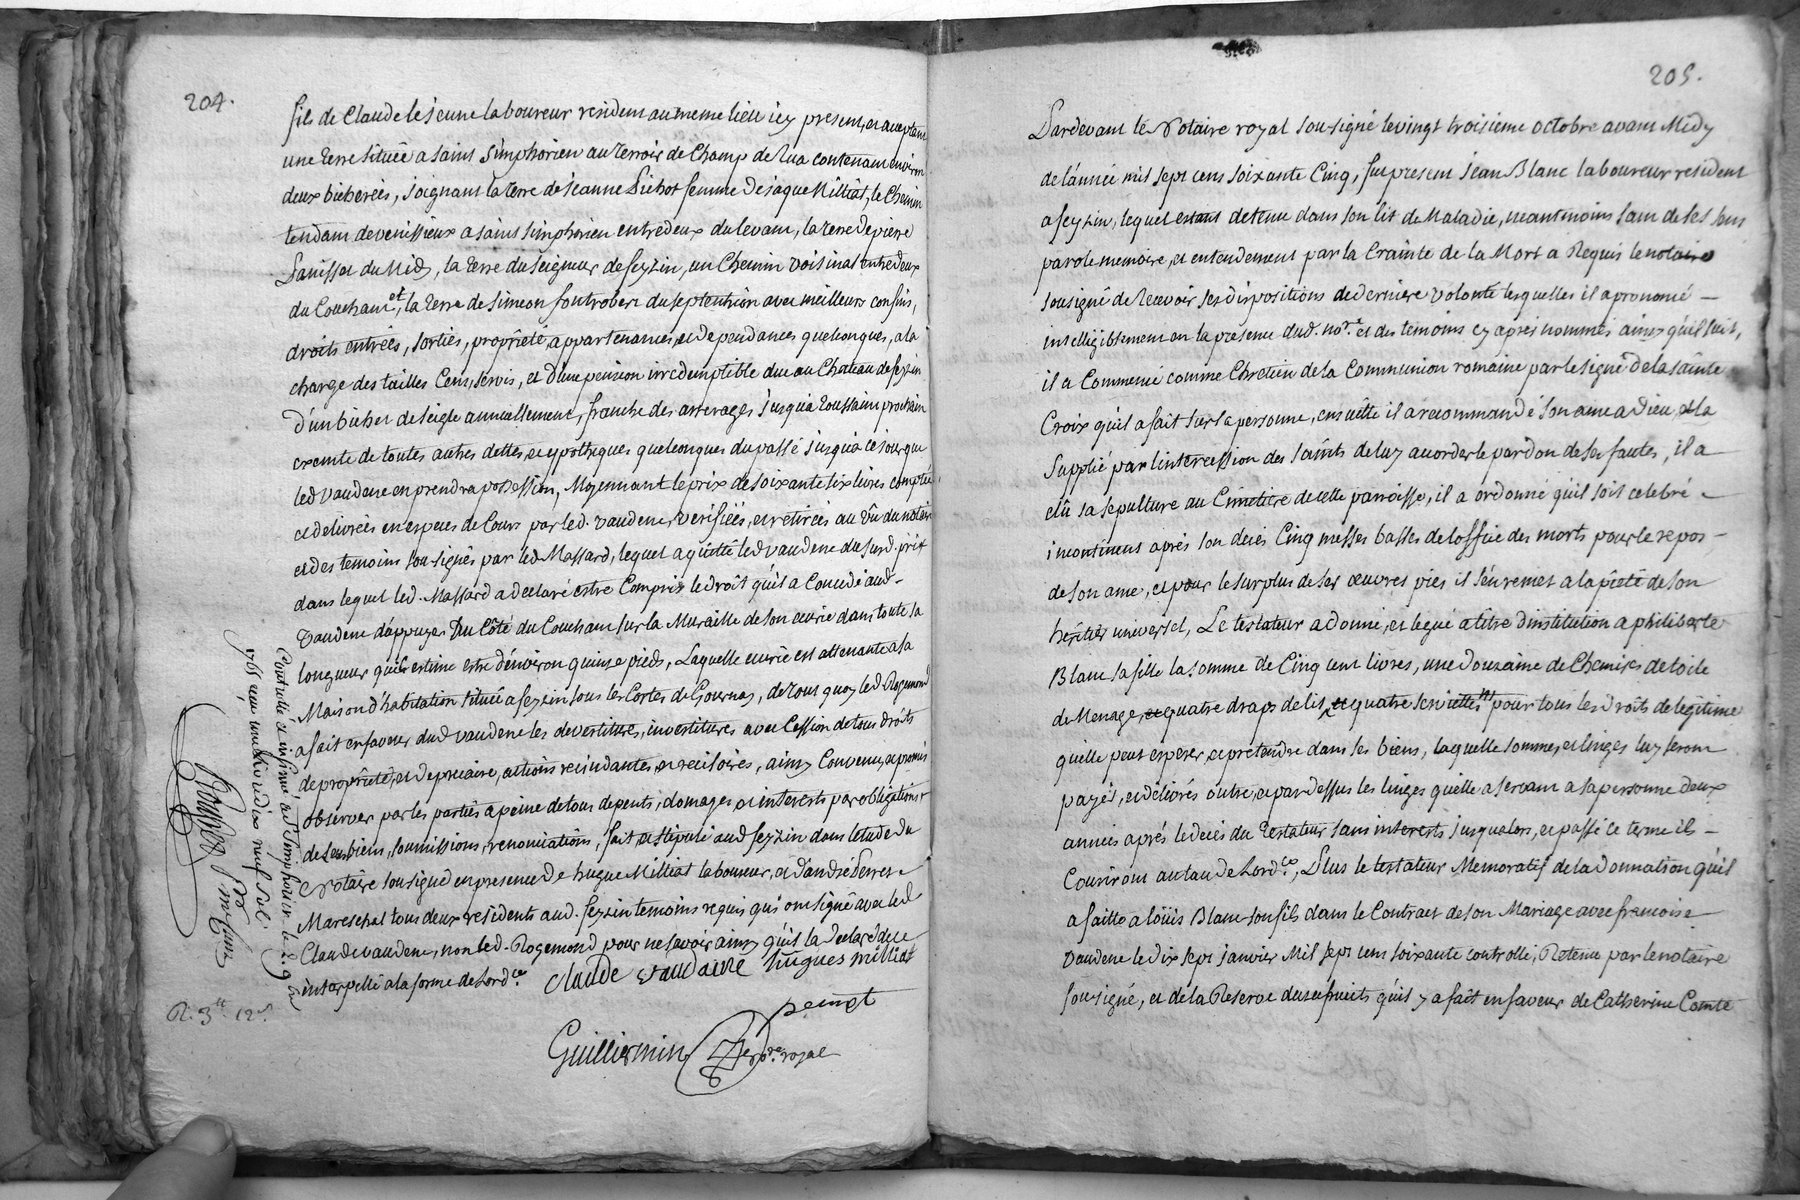 204.
fils de Claude le jeune laboureur resident au meme lieu icy present, et acceptant
une terre située a saint Simphorien au terroir de Champ de rua contenant environ
deux bicherées, joignant la terre de jeanne Pichot femme de jaque Milliat, le Chemin
tendant de venissieux a saint simphorien entredeux du levant, la terre de pierre
Sanissat du Midy, la terre du seigneur de feyzin, un Chemin voisinal entredeux
du Couchant, et la terre de simeon fontrobert du septentrion avec meilleurs confins,
droits entrées, sorties, proprieté appartenances, et dependances quelconques, a la
charge des tailles Cens, servis, et d'une pension irredemptible due au Chateau de feyzin
d'un bichet de seigle annuellement, franche des arrerages jusqu'a toussaint prochain
exemte de toutes autres dettes, et ypotheques quelconques du passé jusqu'a ce jour que
led vaudene en prendra possession, Moyennant le prix de soixante six livres comptée
et delivrées en especes de Cours par led. vaudene, verifiées, et retirées au vû du notaire
et des temoins sousignés par led Massard, lequel a quitté led vaudene du susd. prix
dans lequel led. Massard a declaré estre Compris le droit qu'il a Concedé aud.
vaudene d'appuyer Du Côté du Couchant sur la Muraille de son ecurie dans toute sa
longueur qu'il estime estre d'environ quinze pieds, Laquelle ecurie est attenante a sa
Maison d'habitation située a feyzin sous les Cortes de Gournay, de tout quoy led Rogemond
a fait en faveur dud vaudene les devestitures, investitures avec Cession de tous droits
de proprieté, et de precaire, actions recindantes, et recisoires, ainsy Convenu, et promis
observer par les parties a peine de tous depents, domages et interests par obligations
de leurs biens, soumissions, renonciations, fait et stipulé aud feyzin dans l'etude du
Notaire sousigné en presence de hugue Milliat laboureur, et d'andré Perret
Mareschal tous deux residents aud. feyzin temoins requis qui ont signé avec led
Claude vaudene, non led. Rogemond pour ne savoir ainsy qu'il la declaré de ce
interpellé a la forme de Lord.ce
claude vaudaine hugues milliat
peingt
Guilliermin no.re royal
Controllé et insinué, a st Simphorien le 29 8bre
1765 reçu une livre dix neuf sols
R. 3tt 12s.
205.
Pardevant le Notaire royal sousigné le vingt troisieme octobre avant Midy
de l'année mil sept cens soixante Cinq, fut present jean Blanc laboureur resident
a feyzin, lequel estant detenu dans son lit de Maladie, neantmoins sain de ses sens
parole memoire, et entendement par la Crainte de la Mort a Requis le notaire
sousigné de recevoir ses dispositions de derniere volonté lesquelles il a prononcé —
intelligiblement en la presence dud. no.re et des temoins cy aprés nommés ainsy qu'il suit,
il a Commencé comme Chretien de la Communion romaine par le signe de la sainte
Croix qu'il a fait sur sa personne, ensuitte il a recommandé son ame a dieu, et la
Supplié par l'intercession des saints de luy accorder le pardon de ses fautes, il a
elû sa sepulture au Cimetiere de cette parroisse, il a ordonné qu'il soit celebré —
incontinent aprés son decés Cinq messes basses de loffice des morts pour le repos —
de son ame, et pour le surplus de ses œuvres pies il s'en remet a la pieté de son
heritier universel, Le testateur a donné, et legué a titre d'institution a philiberte
Blanc sa fille la somme de Cinq cent livres, une douzaine de Chemises de toile
de Menage, et quatre draps de lit, et quatre serviettes pour tous les droits de legitime
qu'elle peut esperer, et pretendre dans ses biens, laquelle somme, et linges luy seront
payés, et delivrés outre, et par dessus les linges qu'elle a servant a sa personne deux
années aprés le decés du testateur sans interests jusqu'alors, et passé ce terme ils —
Couriront au taux de Lord.ce, Plus le testateur Memoratif de la donnation qu'il
a faitte a loüis Blanc son fils dans le Contract de son Mariage avec francoise
vaudene le dix sept janvier Mil sept cens soixante controllé, Retenu par le notaire
sousigné, et de la Reserve des usufruits qu'il y a fait en faveur de Catherine Comte